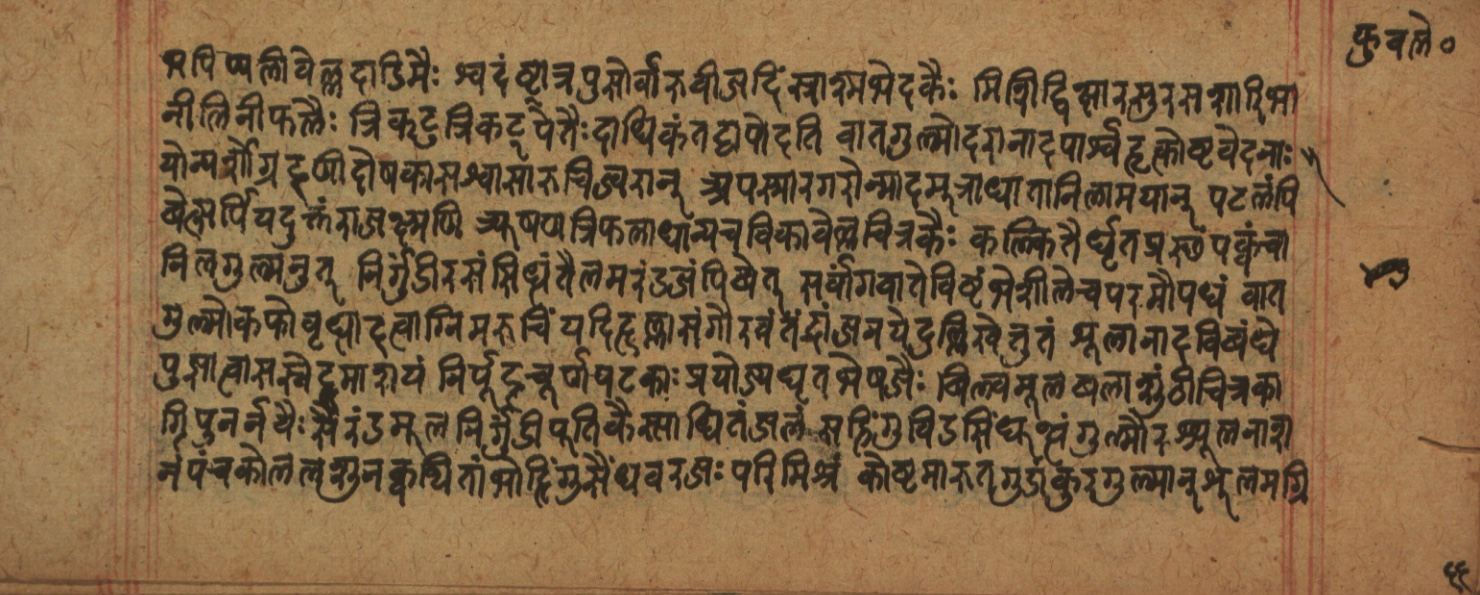 कुवले०
मपिप्पलीवेल्लदाडिमैः श्वदंष्ट्रात्रपुसोर्वारुबीजहिंस्राश्मभेदकैः मिशिद्विक्षारसुरसशारिभा
नीलिनीफलैः त्रिकटुत्रिकटूपेतैः दाधिकं तद्व्यपोहति वातगुल्मोदरानाहपार्श्वहृत्कोष्टवेदनाः
योन्यर्शोग्रहणीदोषकासश्वासारुचिज्वरान् अपस्मारगरोन्मादमूत्राघातानिलामयान् पटलंपि
बेत्सर्पियदुक्तंराजक्ष्मणि त्र्यूषणत्रिफलाधान्यचविकावेल्लचित्रकैः कल्कितैर्घृतप्रस्तंपक्वंवा
निलगुल्मनुत् निर्गुंडीरसंसिधंतैलमरंडजंपिबेत् सर्वांगवातेविष्टंभेशीलेचपरमौषधं वात
गुल्मोकफोवृध्वाहत्वाग्निमरुचिं यदिहृल्लासंगौरवंतंद्रांजनयेदुल्लिखेत्तुतं शूलानाहविबंधे
पुज्ञात्वासस्नेहमाशयं निर्पूहचूर्णवटकाः प्रयोज्यघृतभेषजैः बिल्वमूलबलाशुंठीचित्रका
ग्निपुनर्नवैः सैरंडमूलनिर्गुंडीपूतिकैस्साधितंजलं सहिंगुविडसिंधूत्थंगुल्मोरशूलनाश
नंपंचकोललशुनक्वथितांभोहिंगुसैंधवरजः परिमिश्रं कोष्टमारुतगुदांकुरगुल्मान्शूलमग्नि